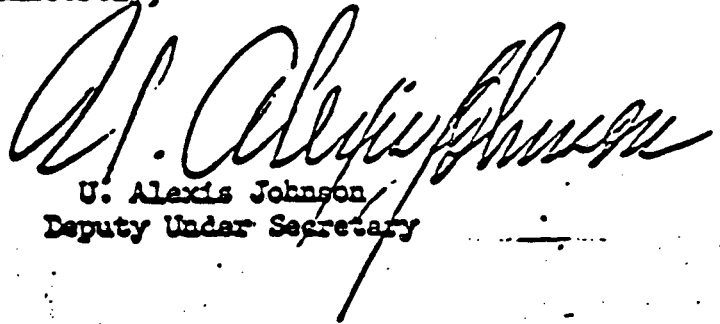 U. Alexis Johnson
U. Alexis Johnson
Deputy Under Secretary